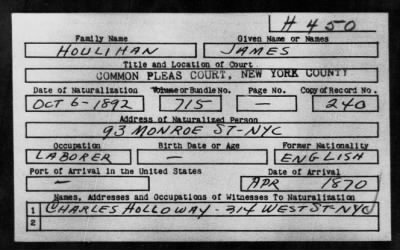 H 450
Family Name Given Name or Names
HOULIHAN JAMES
Title and Location of Court
COMMON PLEAS COURT, NEW YORK COUNTY
Date of Naturalization Volume or Bundle No. Page No. Copy of Record No.
OCT 6-1892 715 — 240
Address of Naturalized Person
93 MONROE ST-NYC
Occupation Birth Date or Age Former Nationality
LABORER — ENGLISH
Port of Arrival in the United States Date of Arrival
— APR 1870
Names, Addresses and Occupations of Witnesses To Naturalization
1 CHARLES HOLLOWAY-314 WEST ST-NYC
2